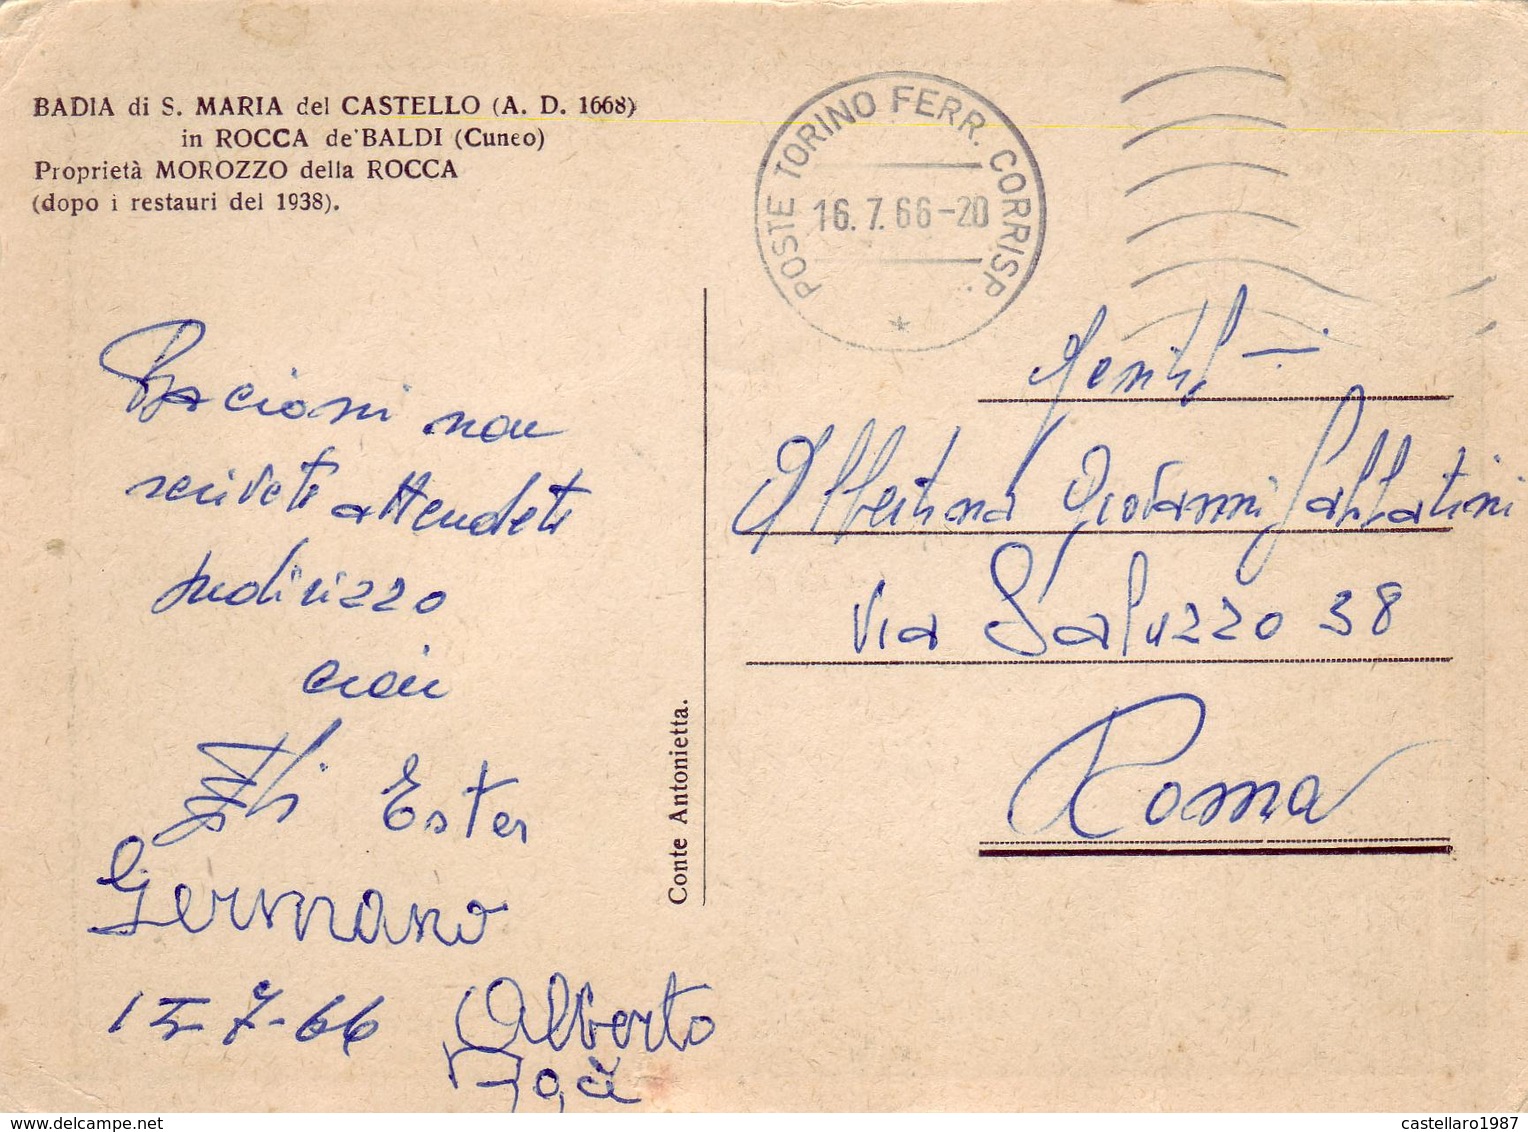 BADIA di S. MARIA del CASTELLO (A. D. 1668)
in ROCCA de' BALDI (Cuneo)
Proprietà MOROZZO della ROCCA
(dopo i restauri del 1938).
POSTE TORINO FERR. CORRISP.
16.7.66-20
Bacioni non
scrivete attendete
indirizzo
ciao
Ester
Germano
15-7-66 Alberto
Conte Antonietta.
Gentil
Albertina Giovanni Sabbatini
Via Saluzzo 38
Roma
delcampe.net
castellaro1987